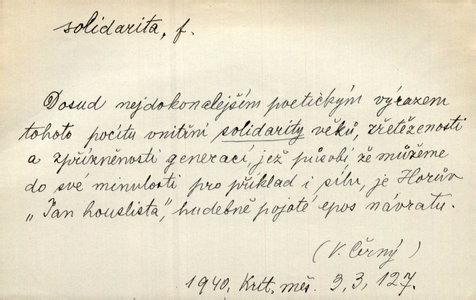 solidarita, f.
Dosud nejdokonalejším poetickým výrazem
tohoto pocitu vnitřní solidarity věků, zřetězenosti
a zpřízněnosti generací, jež působí že můžeme
do své minulosti pro příklad i sílu, je Horův
„Jan houslista", hudebně pojaté epos návratu.
(V. Černý)
1940. Krit. měs. 3, 3, 127.